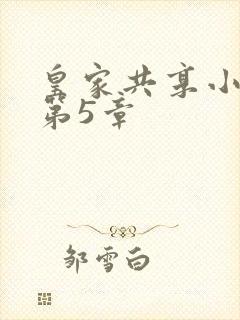 皇家共享小
第5章
邹雪白